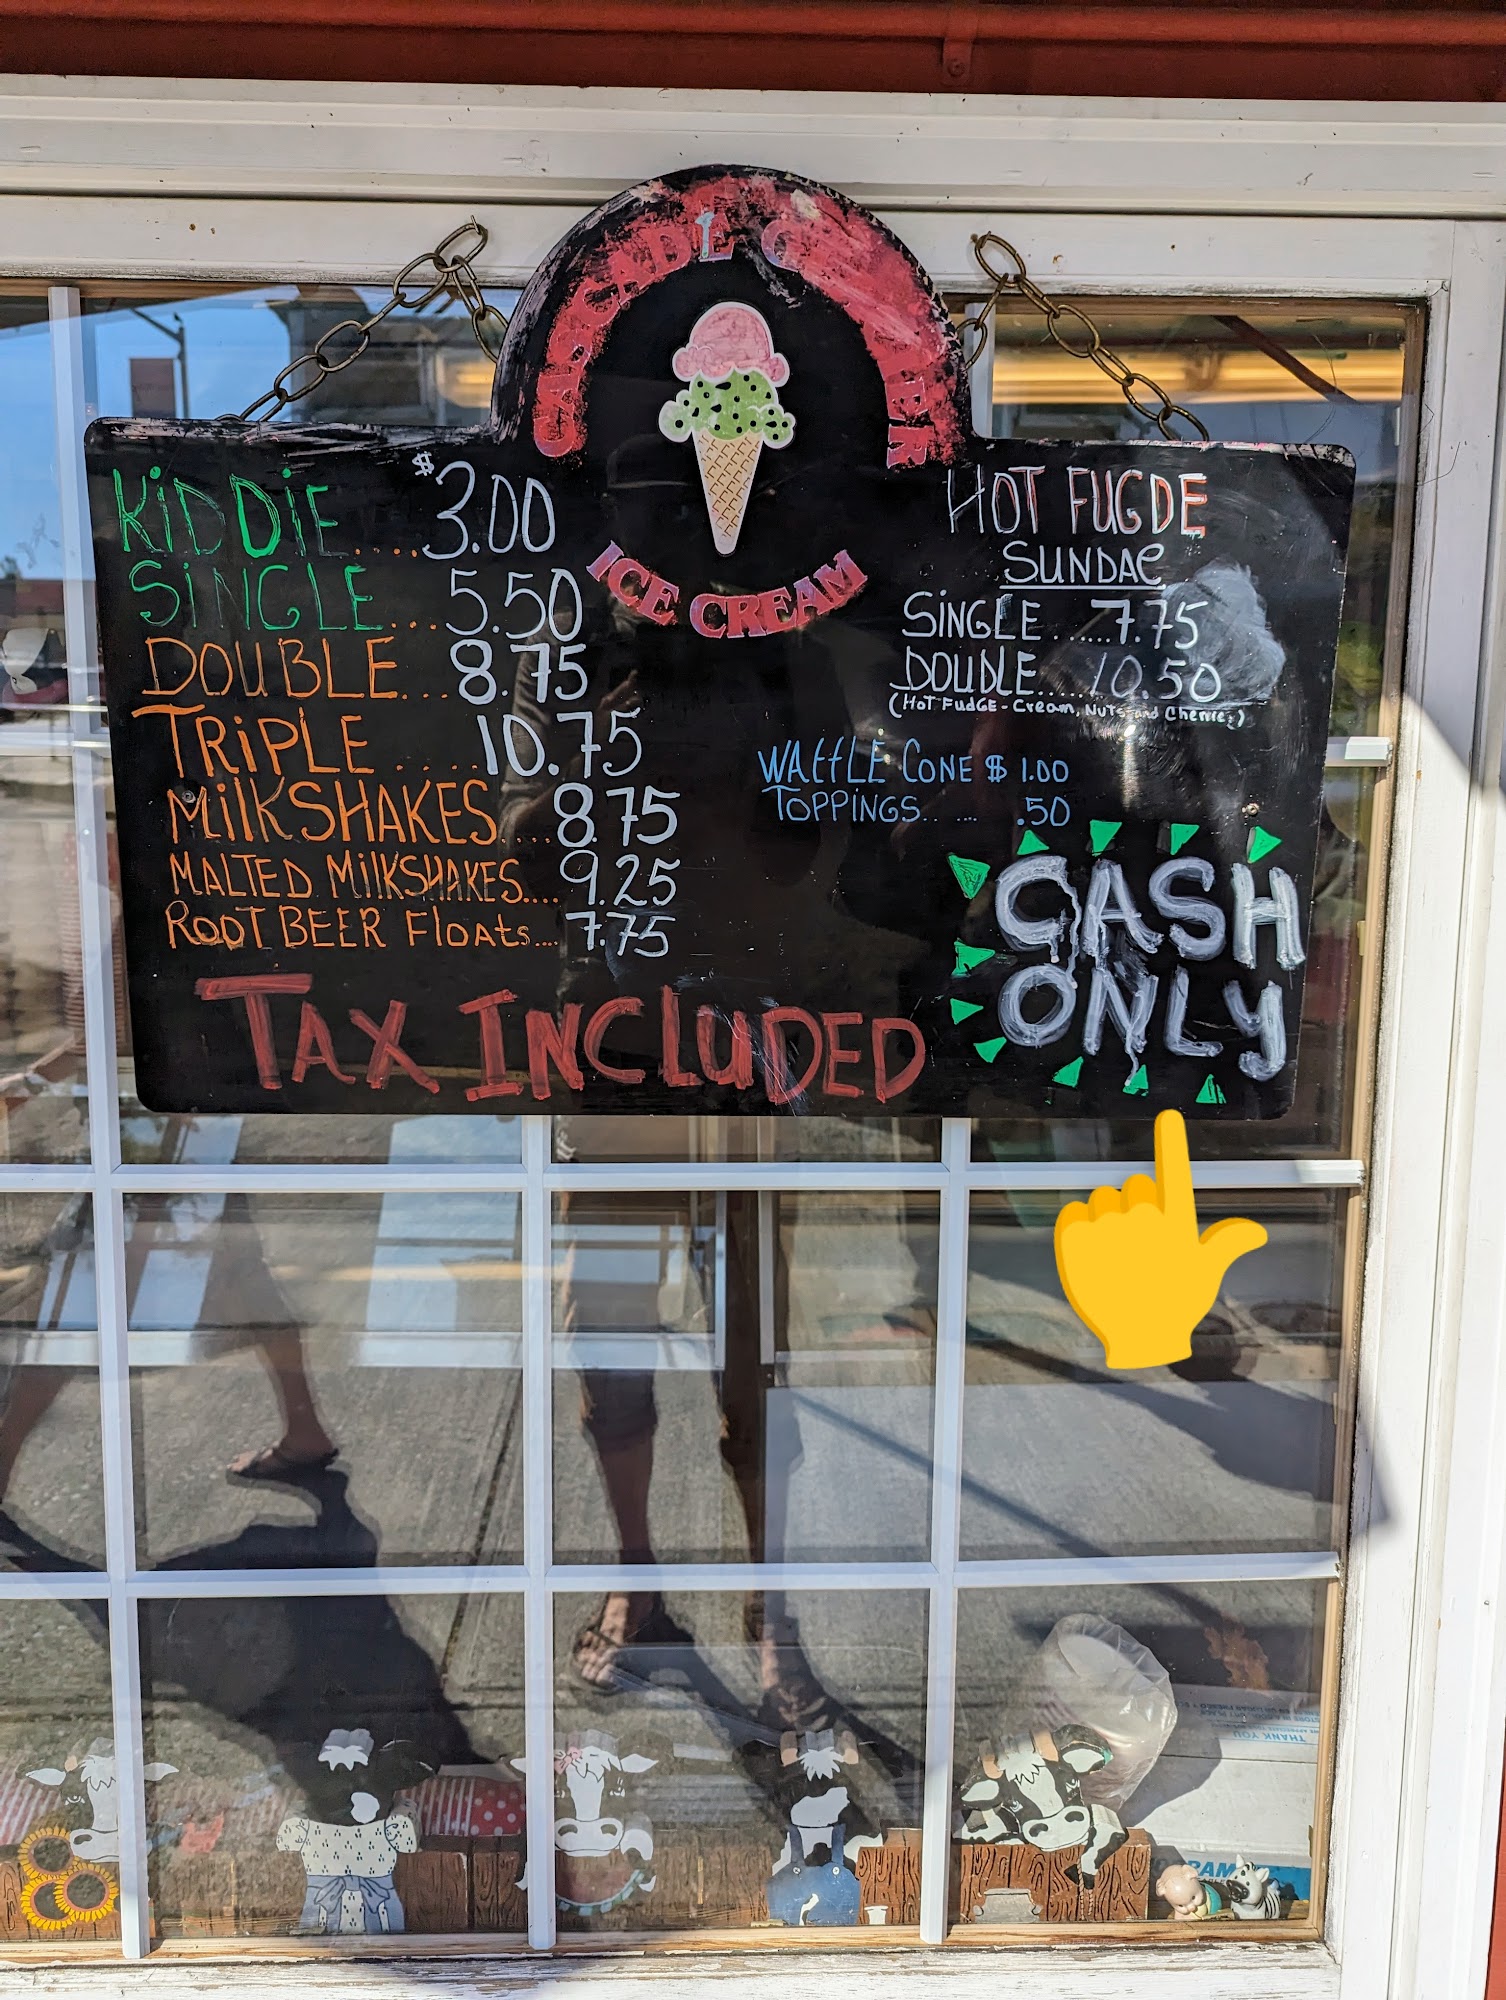 CASCADE
ICE CREAM
KiDDiE....$3.00
SiNGLE...5.50
DOUBLE...8.75
TRiPLE....10.75
MilKSHAKES....8.75
MALTED MilKSHAKES....9.25
ROOT BEER Floats....7.75
TAX INCLUDED
HOT FUGDE
SUNDAe
SiNGLE......7.75
DOUDLE.....10.50
(HoT FudGE-Cream, Nuts and Cherries)
WAffLE CONE $ 1.00
TOPPiNGS.. .... .50
CASH
ONLY
THANK YOU